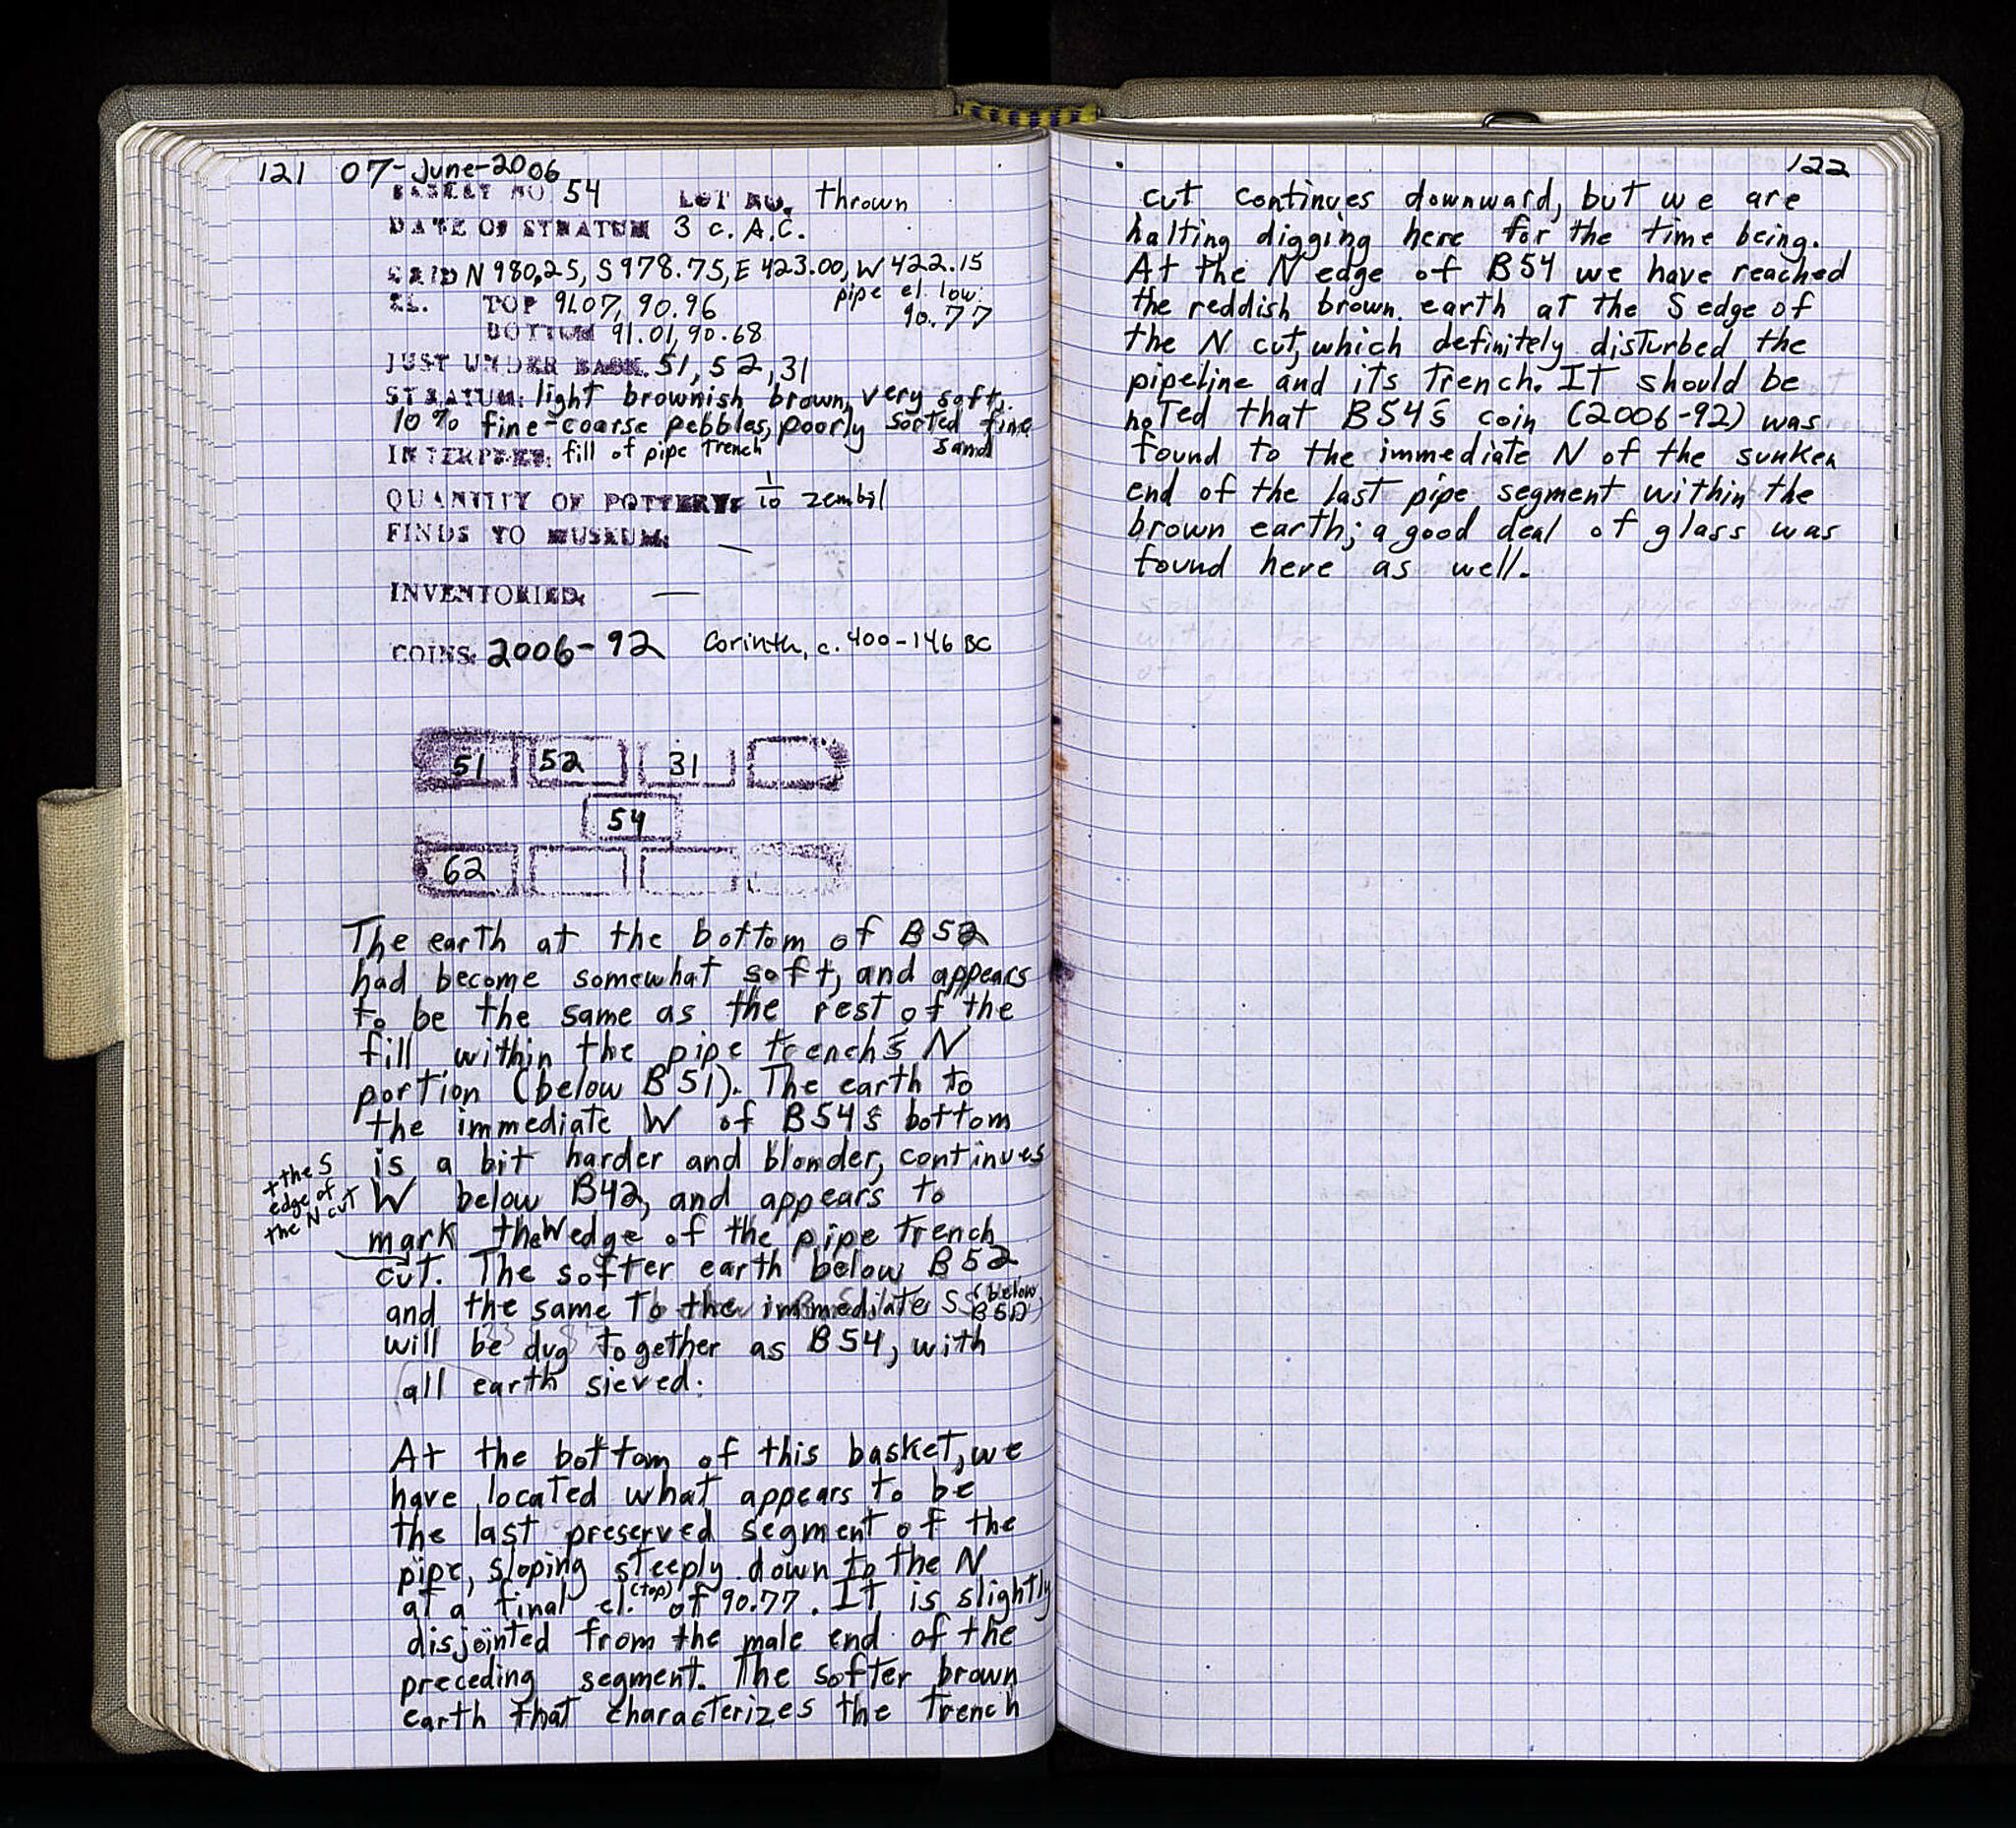 121 07-June-2006
BASKET NO 54 LOT NO. thrown
DATE OF STRATUM 3 c. A.C.
GRID N 980,25, S 978.75, E 423.00, W 422.15
EL. TOP 91.07, 90.96 pipe el. low:
90.77
BOTTOM 91.01, 90.68
JUST UNDER BASK. 51, 52, 31
STRATUM: light brownish brown, very soft,
10% fine-coarse pebbles, poorly sorted fine
sand
INTERPRET: fill of pipe trench
QUANTITY OF POTTERY: 1/10 zembil
FINDS TO MUSEUM: —
INVENTORIED: —
COINS: 2006-92 Corinth, c. 400-146 BC
51 52 31
54
62
The earth at the bottom of B52
had become somewhat soft, and appears
to be the same as the rest of the
fill within the pipe trench's N
portion (below B51). The earth to
the immediate W of B54's bottom
is a bit harder and blonder, continues
W below B42, and appears to
mark the W edge of the pipe trench
+ the S
edge of
the N cut
cut. The softer earth below B52
and the same to the immediate S (below
B51)
will be dug together as B54, with
all earth sieved.
At the bottom of this basket, we
have located what appears to be
the last preserved segment of the
pipe, sloping steeply down to the N
at a final el. (top) of 90.77. It is slightly
disjointed from the male end of the
preceding segment. The softer brown
earth that characterizes the trench
122
cut continues downward, but we are
halting digging here for the time being.
At the N edge of B54 we have reached
the reddish brown earth at the S edge of
the N cut, which definitely disturbed the
pipeline and its trench. It should be
noted that B54's coin (2006-92) was
found to the immediate N of the sunken
end of the last pipe segment within the
brown earth; a good deal of glass was
found here as well.